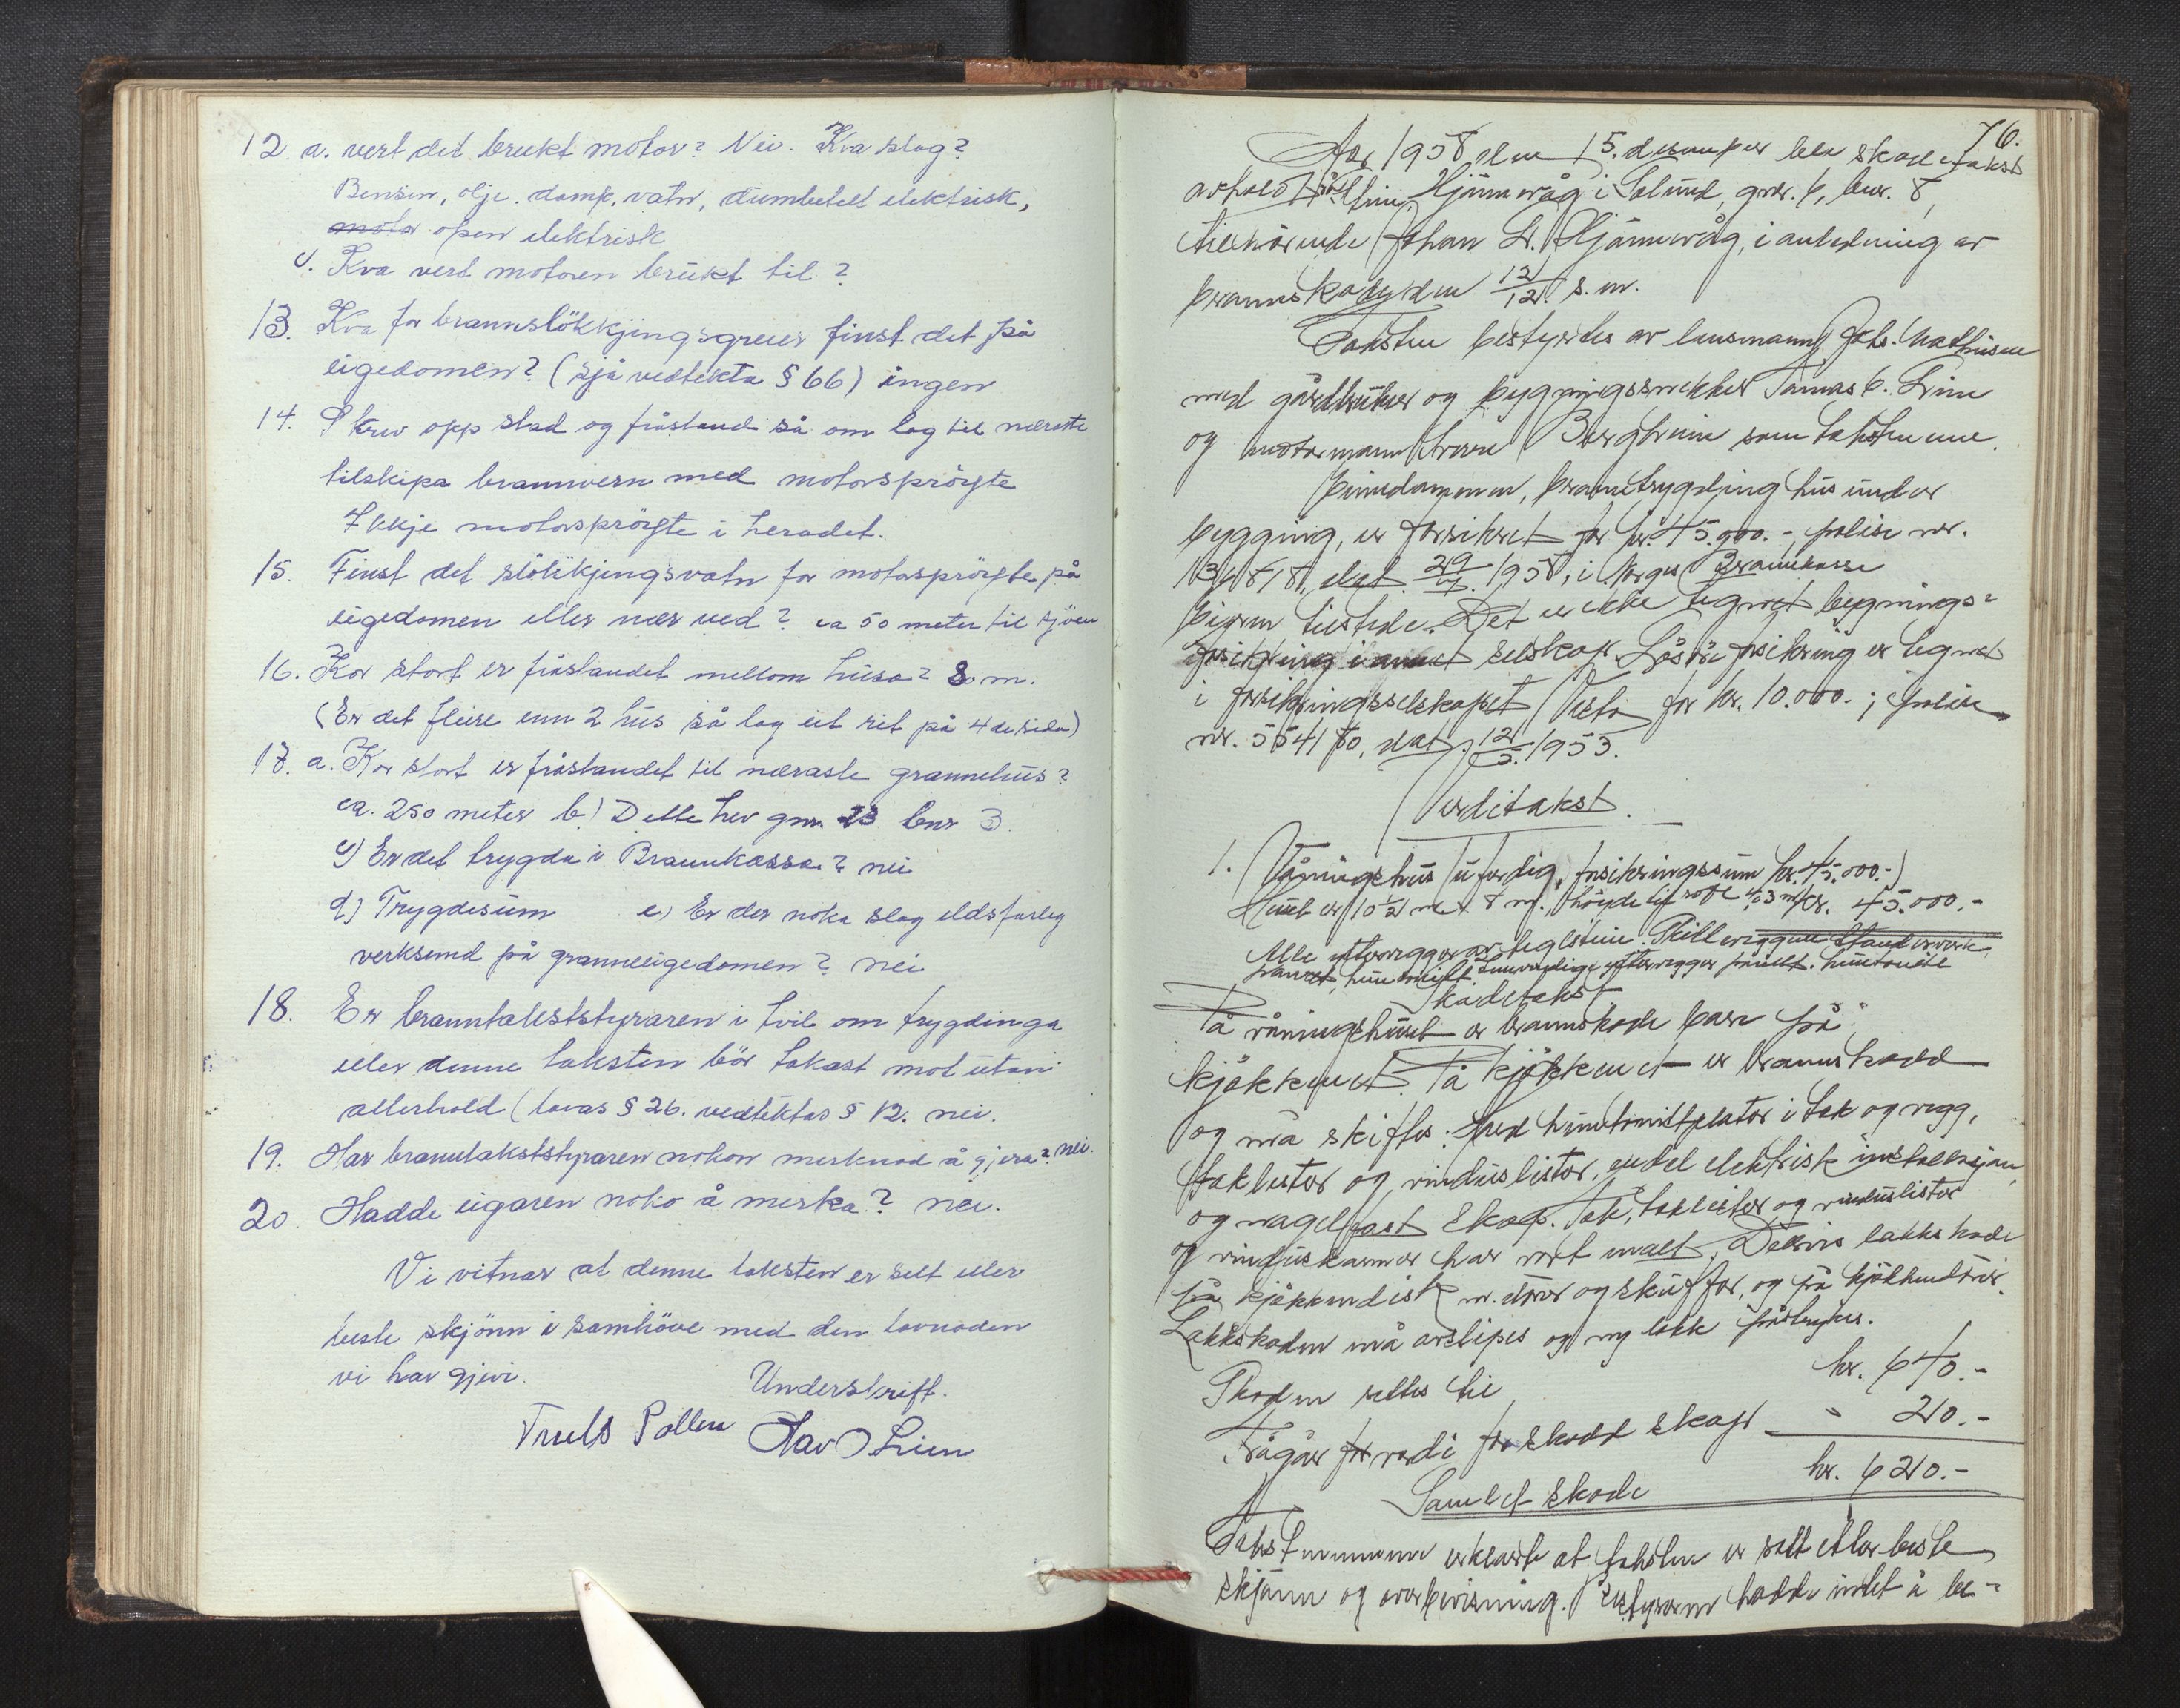 12 a. vert det brukt motor? Nei. Kva slag?
Bensin, olje. damp, vatn, dumbetelt elektrisk,
motor open elektrisk
c. Kva vert motoren brukt til?
13. Kva for brannslökkjingsgreier finst det på
eigedomen? (Sjå vedtekta § 66) ingen
14. Skriv opp stad og fråstand så om lag til næraste
tilskipa brannvern med motorspröyte
Ikkje motorspröyte i heradet.
15. Finst det slökkjingsvatn for motorspröyte på
eigedomen eller nær ved? ca 50 meter til sjöen
16. Kor stort er fråstandet mellom husa? 8 m.
(Er det fleire enn 2 hus så lag eit rit på 4de sida)
17. a. Kor stort er fråstandet til næraste grannehus?
ca. 250 meter b) Dette hev gnr. 23 bnr 3.
c) Er det trygda i Brannkassa? nei
d) Trygdesum e) Er der noka slag eldsfarleg
verksemd på granneeigedomen? nei
18. Er branntakststyraren i tvil om trygdinga
eller denne taksten bör takast mot utan
atterhald (lovas § 26. vedtektas § 12. nei.
19. Har branntakststyraren nokon merknad å gjera? nei.
20. Hadde eigaren noko å merka? nei.
Vi vitnar at denne taksten er sett etter
beste skjönn i samhöve med den lovnaden
vi har gjevi.
Underskrift.
Truls Pollen Olav O Lien
76.
Aar 1958 den 15. desember ble skadetakst
avholdt på Hjønnevåg i Solund, gnr. 6, bnr. 8,
tilhørende Johan L. Hjønnevåg, i anledning av
brannskade den 12/12. s.m.
Taksten bestyrtes av lensmann Johs. Mathisen
med gårdbruker og bygningssnekker Tomas C. Lien
og motormann Bergheim som takstmenn.
Eiendommen, branntrygding hus under
bygging, er forsikret for kr. 45.000.-, polise nr.
dat. 29/7. 1958, i Norges Brannkasse
Eieren tilstede. Det er ikke tegnet bygnings-
forsikring i annet selskap. Lösöreforsikring er tegnet
i forsikringsselskapet Vesta for kr. 10.000.-; polise
nr. 554180, dat. 12/5. 1953.
Verditakst.
1. Våningshus (uferdig, forsikringssum kr. 45.000.-)
Huset er 10½ m x 8 m., høyde til röst 4,3 m. kr. 45.000.-
Alle yttervegger av teglstein. Skilleveggene standerverk
panelt, huntonitt. Innvendige yttervegger panelt. huntonitt
Skadetakst
På våningshuset er brannskade bare på
kjøkkenet. På kjøkkenet er brannskadd
og må skiftes: Hard huntonittplater i tak og vegg,
taklister og vinduslister, endel elektrisk installasjon,
og nagelfast skap. Tak, taklister og vinduslister
og vinduskarmer har vært malt. Delvis lakkskade
på kjøkkendisk m. dører og skuffer, og på kjøkkendører.
Lakkskaden må avslipes og ny lakk påstrykes.
Skaden settes til kr. 640.-
Frågår for verdi for skadd skap " 20.-
Samlet skade kr. 620.-
Takstmennene erklærte at taksten er satt etter beste
skjønn og overbevisning. Bestyreren hadde intet å be-